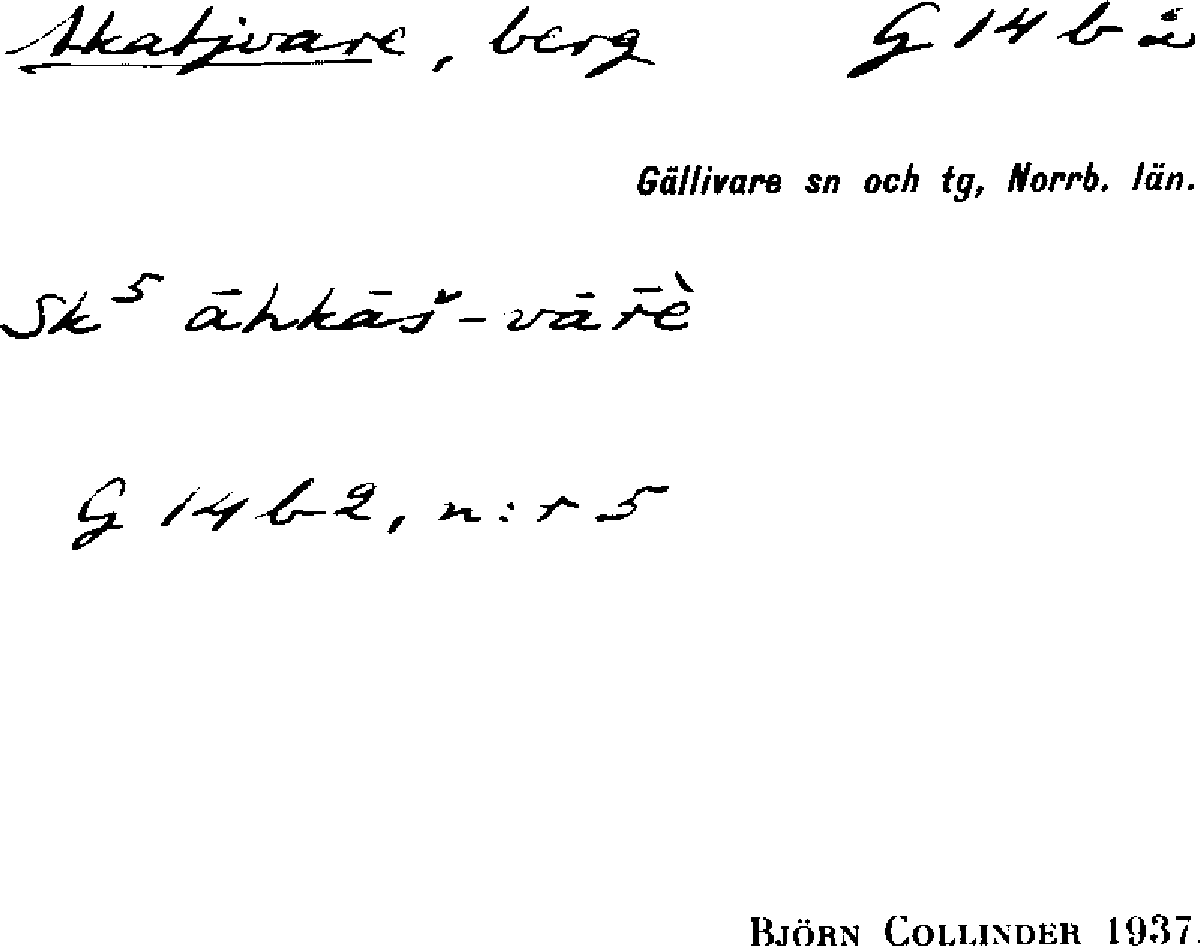 Akatjvare, berg G 14 b å
Gällivare sn och tg, Norrb. län.
Sk⁵ āhkāš-vār̄ḕ
G 14 b 2, n:r 5
BJÖRN COLLINDER 1937.